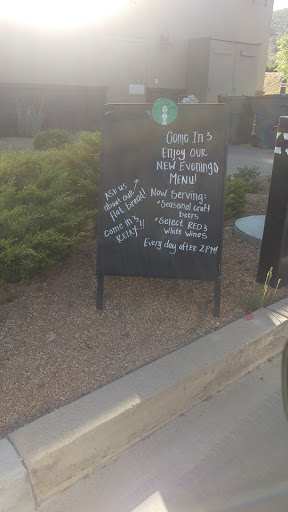 Come In &
Enjoy Our
New Evenings
MENU!
Now Serving:
*Seasonal craft
beers
*Select RED &
White Wines
Every day after 2PM
ASK US
about our
flat bread!!
Come in &
RELAX!!